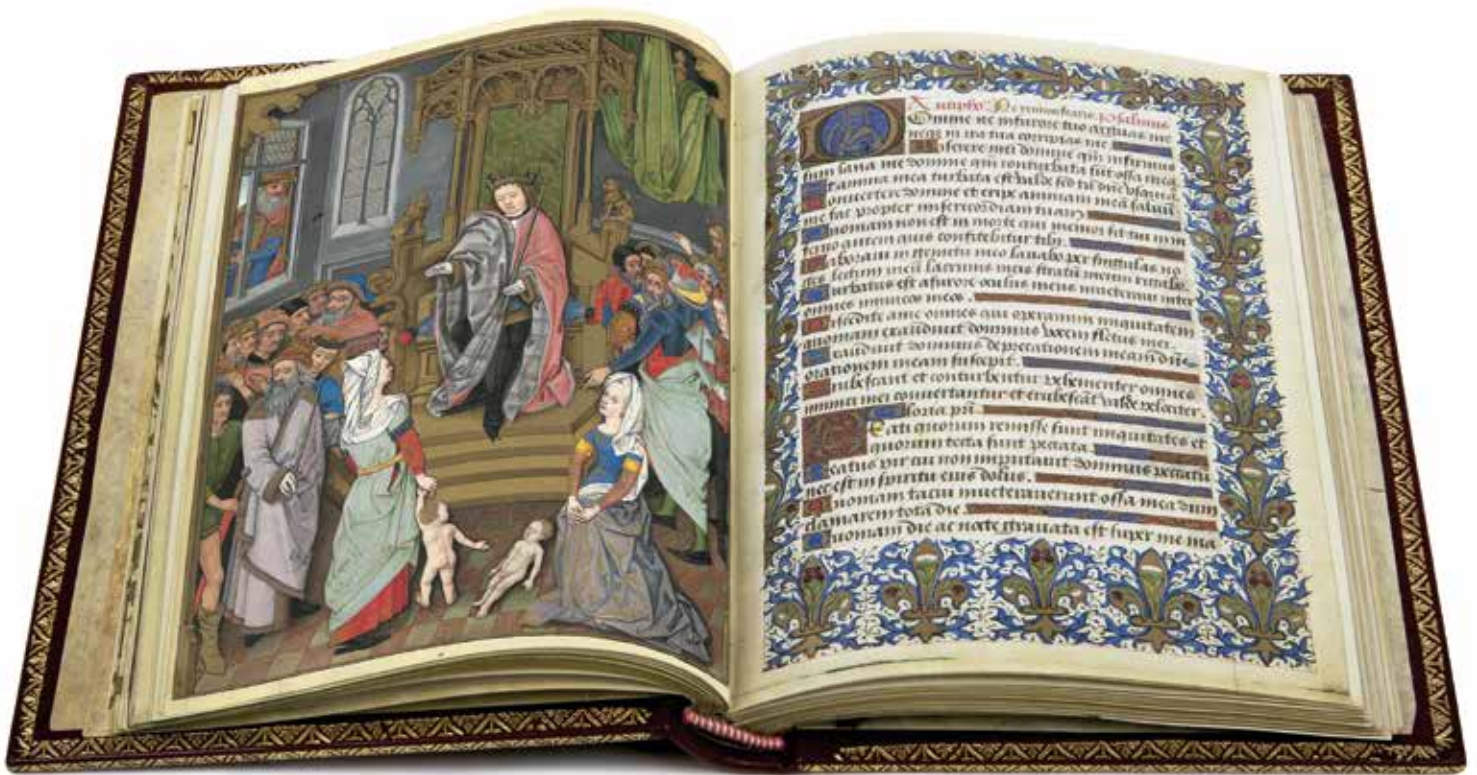 Antipho. Ne reminiscaris. psalmus
Domine ne in furore tuo arguas me
neqz in ira tua corripias me
Miserere mei domine qm̃ infirmus
sum sana me domine qm̃ conturbata sũt ossa mea
Et anima mea turbata est valde sed tu dñe
Convertere domine et eripe animam meã salvũ
me fac propter misericordiam tuam
Quoniam non est in morte qui memor sit tui in in
ferno autem quis confitebitur tibi.
Laboravi in gemitu meo lavabo per singulas no
ctes lectum meũ lacrimis meis stratũ meum rigabo.
Turbatus est a furore oculus meus inveteravi inter
omnes inimicos meos.
Discedite a me omnes qui operamini iniquitatem
quoniam exaudivit dominus vocem fletus mei.
Exaudivit dominus deprecationem meam dñs
orationem meam suscepit.
Erubescant et conturbentur vehementer omnes
inimici mei convertantur et erubescãt valde velociter.
Gloria pr̃i
Beati quorum remisse sunt iniquitates et
quorum tecta sunt peccata.
Beatus vir cui non imputavit dominus peccatũ
nec est in spiritu eius dolus.
Quoniam tacui inveteraverunt ossa mea dum
clamarem tota die.
Quoniam die ac nocte gravata est super me ma